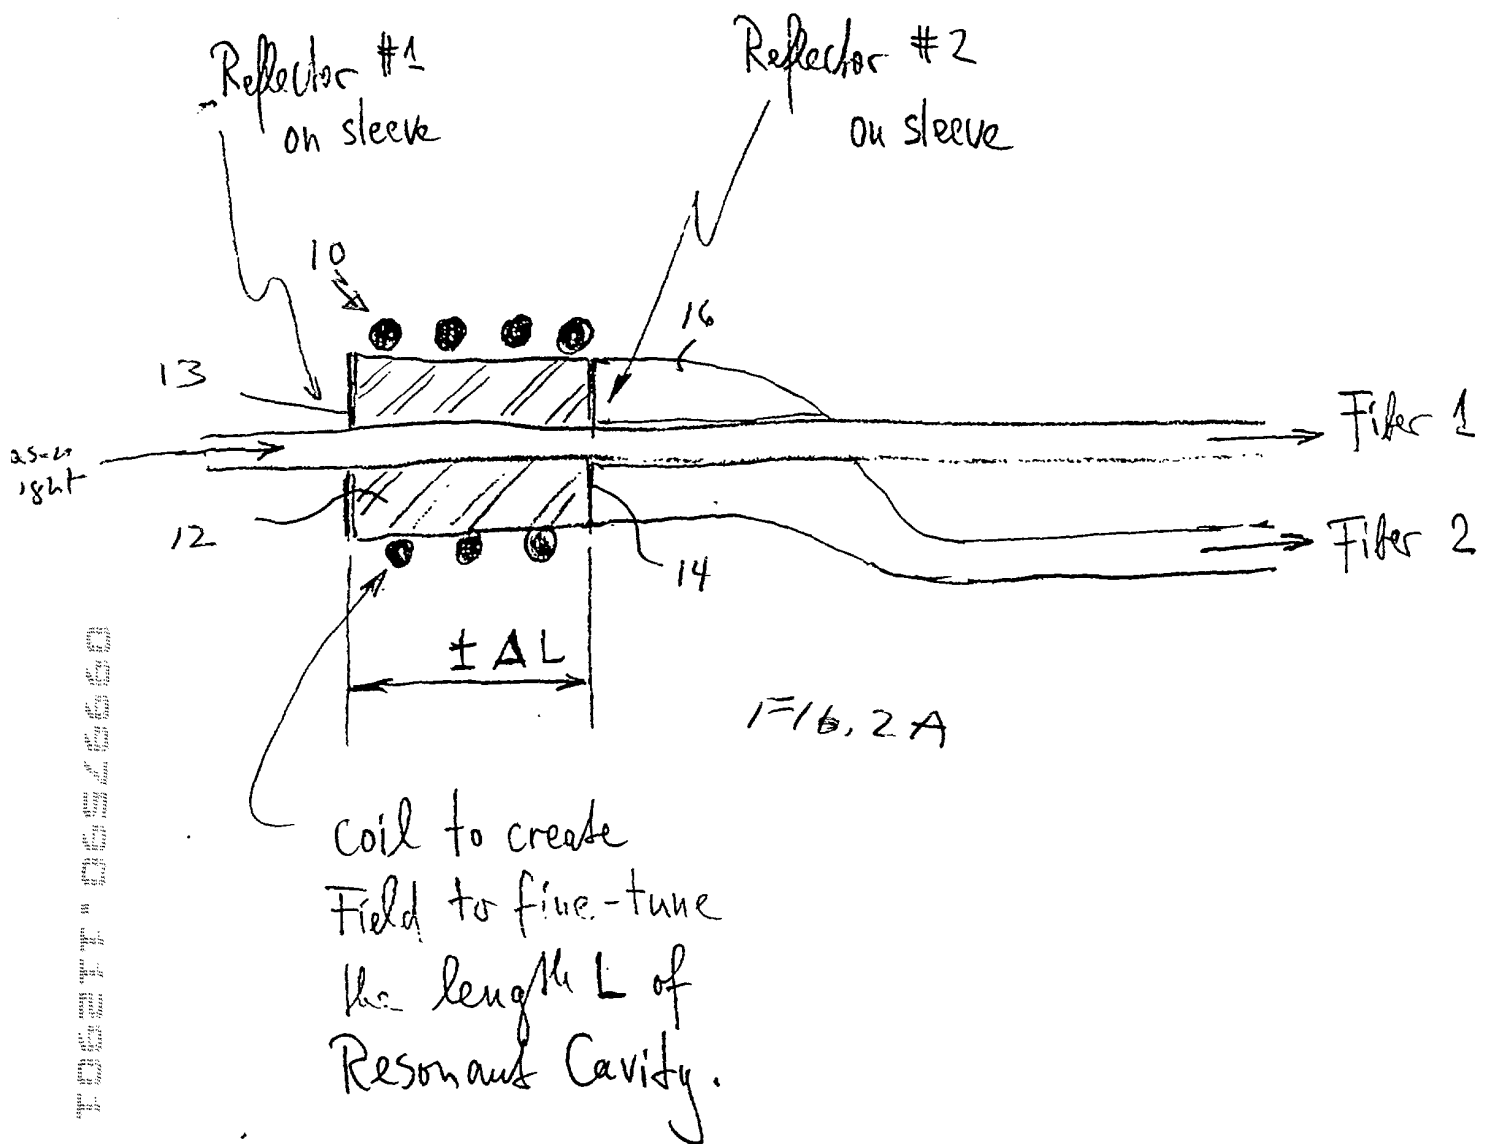 Reflector #1
on sleeve
Reflector #2
on sleeve
10
16
13
Fiber 1
12
14
Fiber 2
± Δ L
FIG. 2A
coil to create
Field to fine-tune
the length L of
Resonant Cavity.